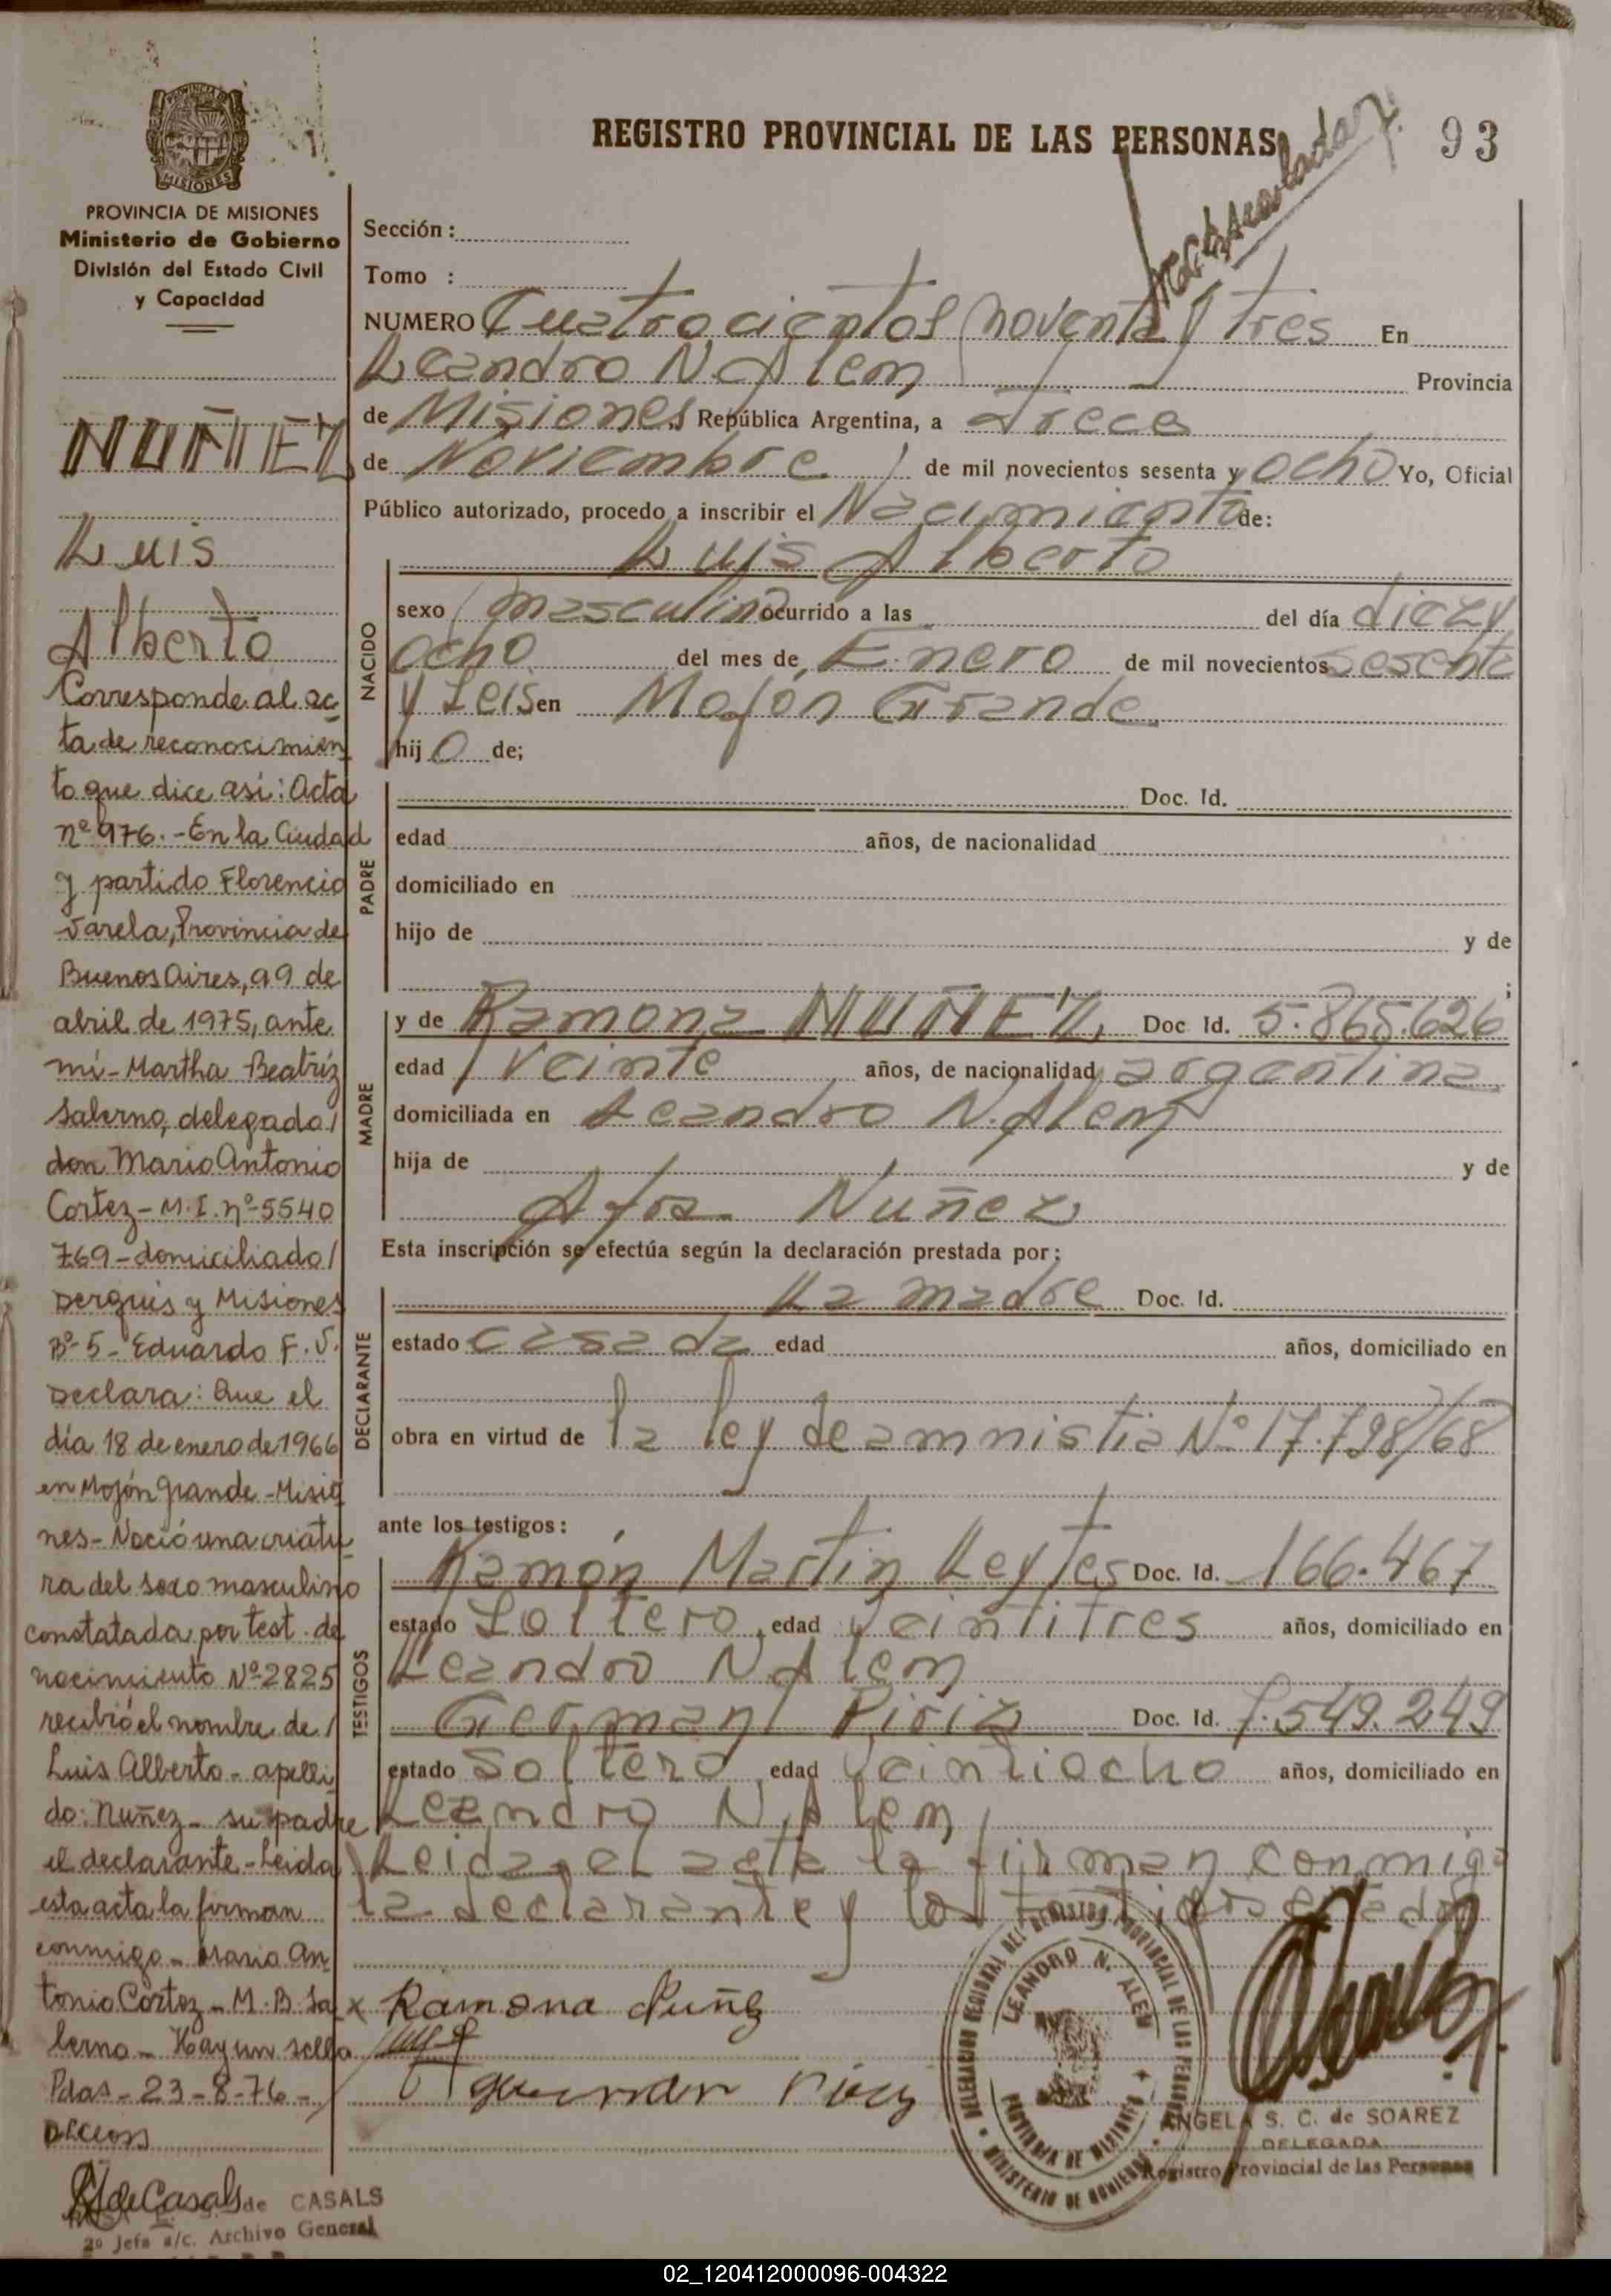 REGISTRO PROVINCIAL DE LAS PERSONAS
93
PROVINCIA DE MISIONES
Ministerio de Gobierno
División del Estado Civil
y Capacidad
NUÑEZ
Luis
Alberto
Corresponde al ac
ta de reconocimien
to que dice asi: Acta
nº 976.- En la Ciudad
y partido Florencio
Varela, Provincia de
Buenos Aires, a 9 de
abril de 1975, ante
mí - Martha Beatriz
Salerno, delegada/
don Mario Antonio
Cortez - M.I. nº 5540
769 - domiciliado/
Derquis y Misiones
Bº 5 - Eduardo F. V.
Declara: Que el
día 18 de enero de 1966
en Mojón Grande - Misio
nes - Nació una criatu
ra del sexo masculino
constatada por test. de
nacimiento Nº 2825
recibió el nombre de/
Luis Alberto - apelli
do: Nuñez - su padre
el declarante - Leida
esta acta la firman
conmigo - Mario An
tonio Cortez - M. B. Sa
lerno - Hay un sello
Pdas - 23-8-76 -
de CASALS
2º Jefa a/c. Archivo General
Sección:
Tomo :
NUMERO Cuatrocientos noventa y tres En
Leandro N. Alem Provincia
de Misiones República Argentina, a Trece
de Noviembre de mil novecientos sesenta y ocho Yo, Oficial
Público autorizado, procedo a inscribir el Nacimiento de:
Luis Alberto
NACIDO
sexo masculino ocurrido a las del día diez y
ocho del mes de Enero de mil novecientos sesenta
y Seis en Mojón Grande
hijo de;
PADRE
Doc. Id.
edad años, de nacionalidad
domiciliado en
hijo de y de
;
MADRE
y de Ramona NUÑEZ, Doc Id. 5.865.626
edad veinte años, de nacionalidad argentina
domiciliada en Leandro N. Alem
hija de y de
Afra Nuñez
Esta inscripción se efectúa según la declaración prestada por:
DECLARANTE
La madre Doc. Id.
estado casada edad años, domiciliado en
obra en virtud de la ley de amnistia Nº 17.798/68
ante los testigos:
TESTIGOS
Ramón Martin Leytes Doc. Id. 166.467
estado Soltero, edad veintitres años, domiciliado en
Leandro N. Alem
German Piriz Doc. Id. 7.549.249
estado Soltero edad veintiocho años, domiciliado en
Leandro N. Alem
Leida el acta la firman conmigo
la declarante y los testigos citados
x Ramona Nuñez
DELEGACION REGIONAL DEL REGISTRO PROVINCIAL DE LAS PERSONAS
LEANDRO N. ALEM
PROVINCIA DE MISIONES
MINISTERIO DE GOBIERNO
ANGELA S. C. de SOAREZ
DELEGADA
Registro Provincial de las Personas
02_120412000096-004322